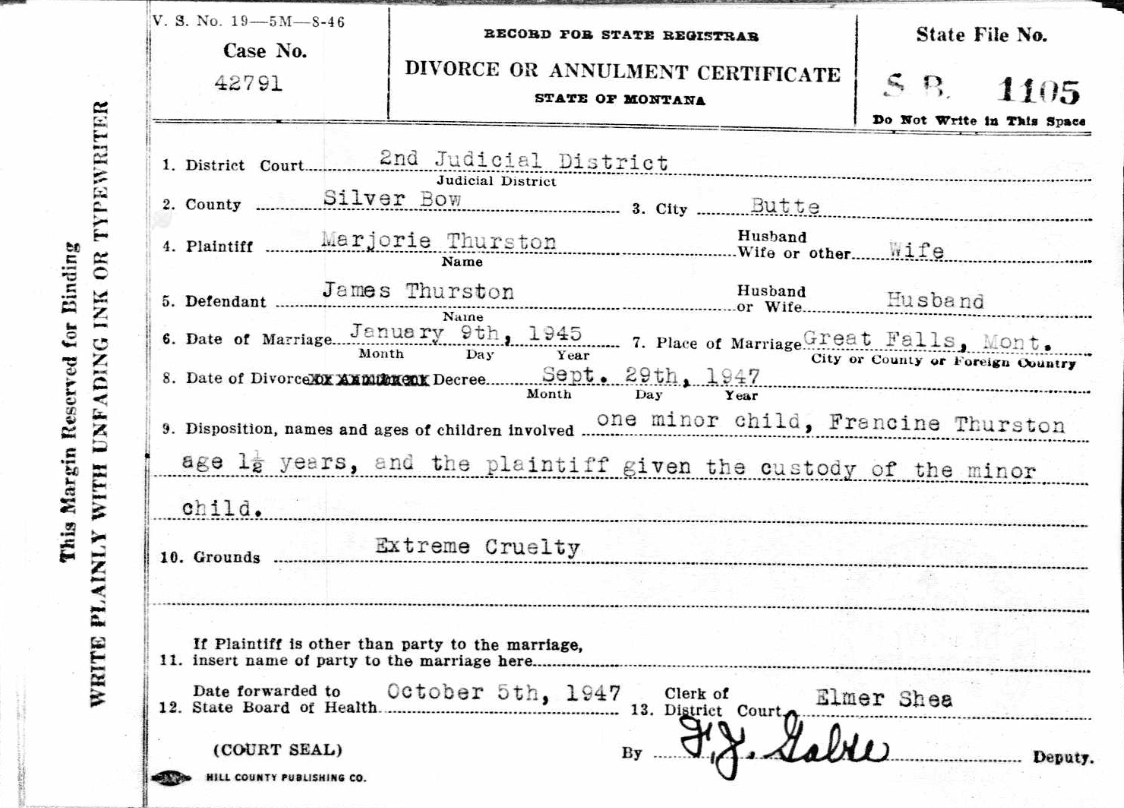 V. S. No. 19—5M—8-46
Case No.
42791
RECORD FOR STATE REGISTRAR
DIVORCE OR ANNULMENT CERTIFICATE
STATE OF MONTANA
State File No.
S B. 1105
Do Not Write in This Space
This Margin Reserved for Binding
WRITE PLAINLY WITH UNFADING INK OR TYPEWRITER
1. District Court 2nd Judicial District
Judicial District
2. County Silver Bow 3. City Butte
4. Plaintiff Marjorie Thurston Husband Wife or other Wife
Name
5. Defendant James Thurston Husband or Wife Husband
Name
6. Date of Marriage January 9th, 1945 7. Place of Marriage Great Falls, Mont.
Month Day Year City or County or Foreign Country
8. Date of Divorce or Annulment Decree Sept. 29th, 1947
Month Day Year
9. Disposition, names and ages of children involved one minor child, Francine Thurston
age 1½ years, and the plaintiff given the custody of the minor
child.
10. Grounds Extreme Cruelty
If Plaintiff is other than party to the marriage,
11. insert name of party to the marriage here
Date forwarded to October 5th, 1947 Clerk of Elmer Shea
12. State Board of Health 13. District Court
(COURT SEAL) By F. J. Deputy.
HILL COUNTY PUBLISHING CO.